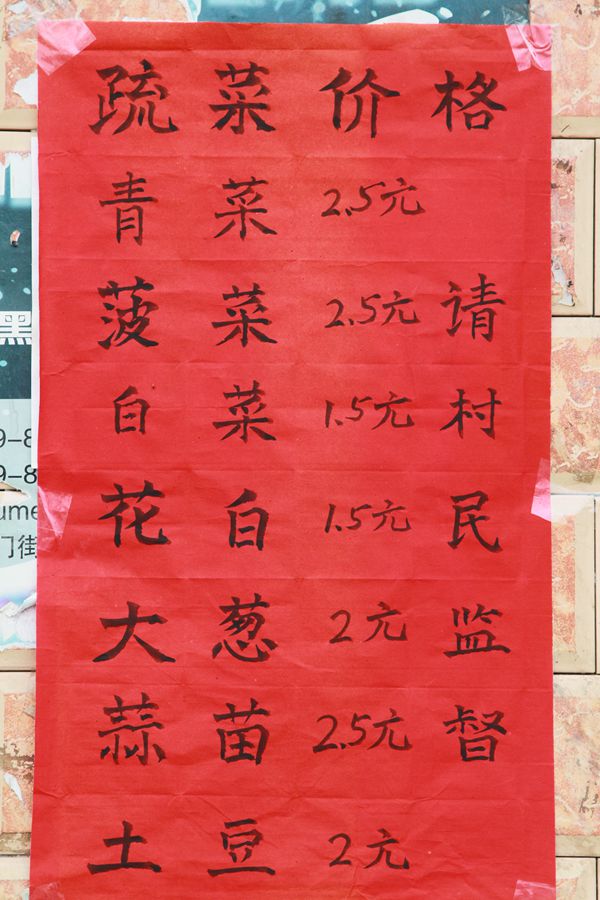 疏菜价格
青菜 2.5元
菠菜 2.5元
白菜 1.5元
花白 1.5元
大葱 2元
蒜苗 2.5元
土豆 2元
请村民监督
黑
9-8
9-8
ume
门街